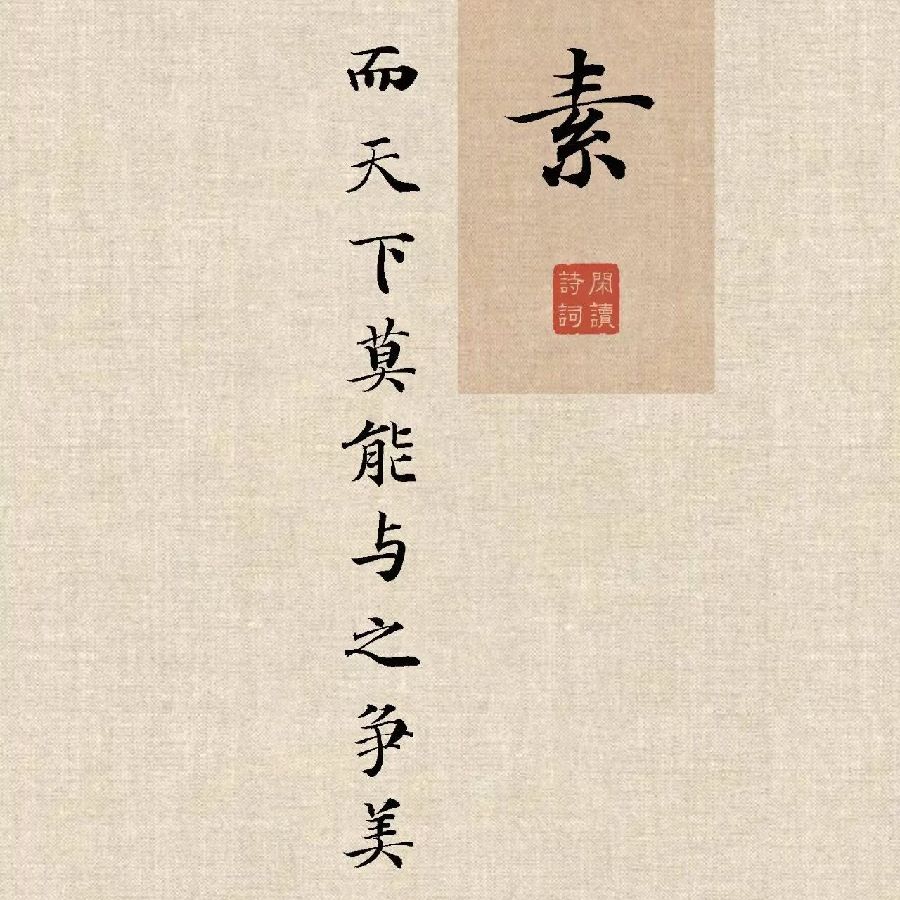 素
閑讀
詩詞
而天下莫能与之争美